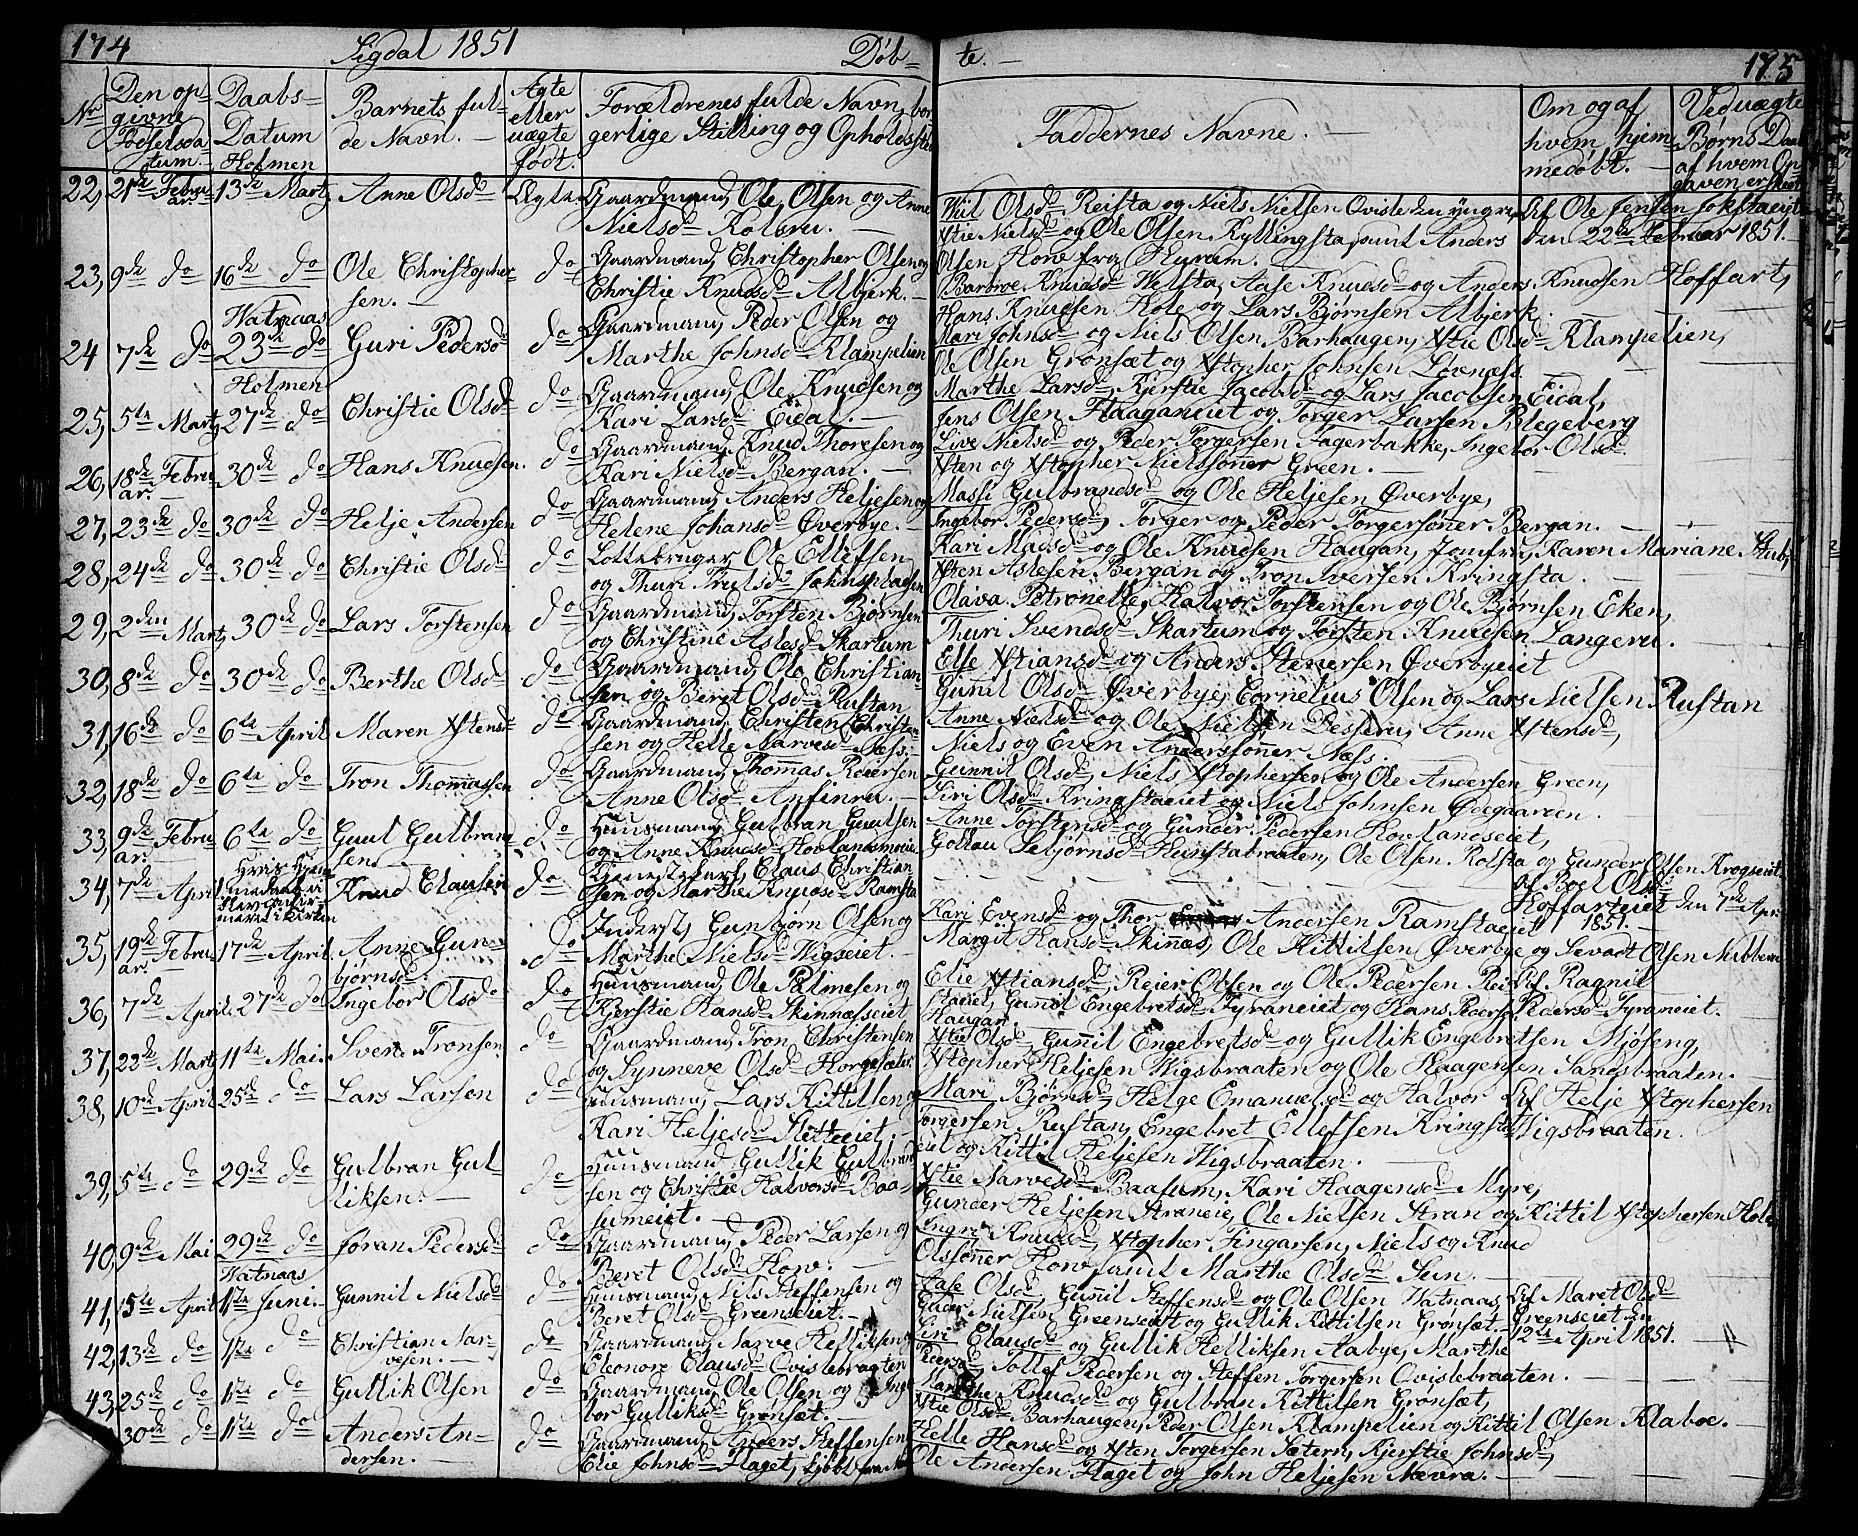 174 Sigdal 1851 Døb-
te. 175
No
Den op-
givne
Fødselsda
tum.
Daabs-
Datum
Holmen
Barnets ful-
de Navn.
Ægte
eller
uægte
født.
Forældrenes fulde Navn, bor-
gerlige Stilling og Opholdssted
Faddernes Navne.
Om og af
hvem hjem-
medøbt.
Ved uægte
Børns Daab
af hvem Op-
gaven er skeet
22, 21de Febru 13de Martz Anne Olsdr Ægte Gaardmand, Ole Olsen og Anne
ar.
Nielsdr Kolsru.
Olsdr Reista og Niels Nielsen Qvisle den yngre
Af Ole Jensen Jokstaeiet
Xstie Nielsdr og Ole Olsen Kyllingsta, samt Anders
den 22de Februar 1851.
Olsen Horv fra Hurum.
23, 9de do 16de do Ole Christopher- do Gaardmand, Christopher Olsen og
sen. Christie Knudsdr Albjerk.
Barbroe Knudsdr Welsta, Aase Knudsdr og Anders Knudsen Hoffart,
Hans Knudsen Hole og Lars Bjørnsen Albjerk.
Watnaas
24 7de do 23de do Guri Pedersdr do Gaardmand, Peder Olsen og
Marthe Johnsdr Klampelien
Mari Johnsdr og Niels Olsen Barhaugen, Xstie Olsdr Klampelien,
Ole Olsen Grønsæt og Xstopher Johnsen Lovnæss.
Holmen
25, 5te Martz 27de do Christie Olsdr do Gaardmand, Ole Knudsen og
Kari Larsdr Eidal.
Marthe Larsdr, Kjerstie Jacobsdr og Lars Jacobsen Eidal,
Jens Olsen Haaganeiet og Torger Larsen Blegeberg
26, 18de Febru 30de do Hans Knudsen. do Gaardmand, Knud Thoresen og
ar. Kari Nielsdr Bergan.
Live Nielsdr og Peder Torgersen Fagerbakke, Ingebor Olsdr
Xsten og Xstopher Nielssønner Green.
27, 23de do 30de do Helje Andersen do Gaardmand, Anders Heljesen og
Helene Johansdr Øverbye.
Massi Gulbrandsdr og Ole Heljesen Øverbye,
Ingebor Pedersdr, Torger og Peder Torgersønner Bergan.
28, 24de do 30de do Christie Olsdr do Ole Ellefsen
og Thuri Trulsdr Johnsplassen
Kari Madsdr og Ole Knudsen Haugan, Jomfru, Karen Mariane Stub,
Xsten Aslesen Bergan og Tron Iversen Kringsta.
29, 2den Martz 30de do Lars Torstensen do Gaardmand, Torsten Bjørnsen
og Christine Aslesdr Skartum
Olava Petronelle, Halvor Torstensen og Ole Bjørnsen Eken,
Thuri Svendsdr Skartum og Torsten Knudsen Langeru.
30, 8de do 30de do Berthe Olsdr do Gaardmand, Ole Christian-
sen og Beret Olsdr Rustan
Else Xstiansdr og Anders Stenersen Øverbyeiet
Gunil Olsdr Øverbye, Cornelius Olsen og Lars Nielsen Rustan
31, 16de do 6te April Maren Xstensdr do Gaardmand, Christen Christen-
sen og Helle Narvesdr Næss.
Anne Nielsdr og Ole Nielsen Besseru, Anne Xstensdr,
Niels og Even Anderssønner Næss.
32, 18de do 6te do Tron Thomassen do Gaardmand, Thomas Reiersen
Anne Olsdr Anfinru.
Gunnil Olsdr, Niels Xstophersen og Ole Andersen Green,
Siri Olsdr Kringstaeiet og Niels Johnsen Ødegaarden.
33, 9de Febru 6te do Guul Gulbrand- do Huusmand, Gulbran Guulsen
ar. sen og Anne Knudsdr Hovlandsmoeiet
Anne Torstensdr og Gunder Pedersen Hovlandseiet,
Sebjørnsdr Hunstabraaten, Ole Olsen Rolsta og Gunder Olsen Krogseiet
34, 7de April Knud Clausen do Tjenestekarl, Claus Christian-
sen og Marthe Knudsdr Ramsta
Af Boel Olsdr
Hoffarteiet den 7de April
1851.
35, 19de Febru 17de April. Anne Gun- do Inderst, Gunbjørn Olsen og
ar. bjørnsdr. Marthe Nielsdr Wigseiet.
Kari Evensdr og Thor Andersen Ramstaeiet
Margit Hansdr Skinæs, Ole Kittilsen Øverbye og Sevadt Olsen Nubberu
36, 7de April. 27de do Ingebor Olsdr do Huusmand, Ole Palmesen og
Kjerstie Hansdr Skinnæsseiet
Elie Xstiansdr, Reier Olsen og Ole Pedersen Rei-
Af Ragnil
staeiet, Gunil Engebretsdr Fyraneiet og Hans Pedersen
Pedersdr Fyraneiet.
Haugan.
37, 22de Martz 11te Mai. Svend Tronsen. do Gaardmand, Tron Christensen
og Synneve Olsdr Horgesæter.
Xstie Olsdr, Gunnil Engebretsdr og Gullik Engebretsen Mjøseng,
Xstopher Heljesen Wigsbraaten og Ole Haagensen Sandsbraaten.
38, 10de April 25de do Lars Larsen do Huusmand, Lars Kittilsen og
Kari Heljesdr Skitteeiet.
Mari Bjørnsdr, Helge Emanuelsdr og Halvor
Af Helje Xstophersen
Torgersen Rustan, Engebret Ellefsen Kringsta-
Wigsbraaten.
eiet og Kittil Heljesen Wigsbraaten.
39, 5te do 29de do Gulbran Gul- do Huusmand, Gullik Gulbrand-
liksen. sen og Christie Halvorsdr Baa-
sumeiet.
Xstie Narvesdr Baasum, Kari Haagensdr Myre,
Gunder Heljesen Straneie, Ole Nielsen Stran og Kittil Xstophersen Hole,
40, 9de Mai 29de do Jøran Pedersdr do Gaardmand, Peder Larsen og
Beret Olsdr Horv.
Ingri Knudsdr, Xstopher Fingarsen, Niels og Knud
Olssønner Horv samt Marthe Olsdr Sun.
Watnaas
41, 15te April 1te Juni. Gunnil Nielsdr do Huusmand, Nils Steffensen og
Beret Olsdr Greenseiet.
Aase Olsdr, Gunil Steffensdr og Ole Olsen Watnaas,
Af Maret Olsdr
Nielsen Greenseiet og Gullik Kittilsen Grønsæt.
Greenseiet den
12te April 1851.
42, 13de do 1te do Christian Nar- do Gaardmand, Narve Helliksen og
vesen. Eleonore Clausdr Qvislebraaten
Siri Clausdr og Gullik Helliksen Aabye, Marthe
Pedersdr, Tollef Pedersen og Steffen Torgersen Qvislebraaten.
43, 25de do 1te do Gullik Olsen do Gaardmand, Ole Olsen og Inge-
bor Gulliksdr Grønsæt.
Marthe Knudsdr og Gulbran Kittilsen Grønsæt,
Xstie Olsdr Barhaugen, Peder Olsen Klampelien og Kittil Olsen Klaboe.
30de do 1te do Anders An- do Gaardmand, Anders Steffensen
dersen. Elie Johnsdr Flaget,
Helle Hansdr og Xsten Torgersen Sætern, Kjerstie Johnsdr,
Ole Andersen Flaget og John Heljesen Nævra.